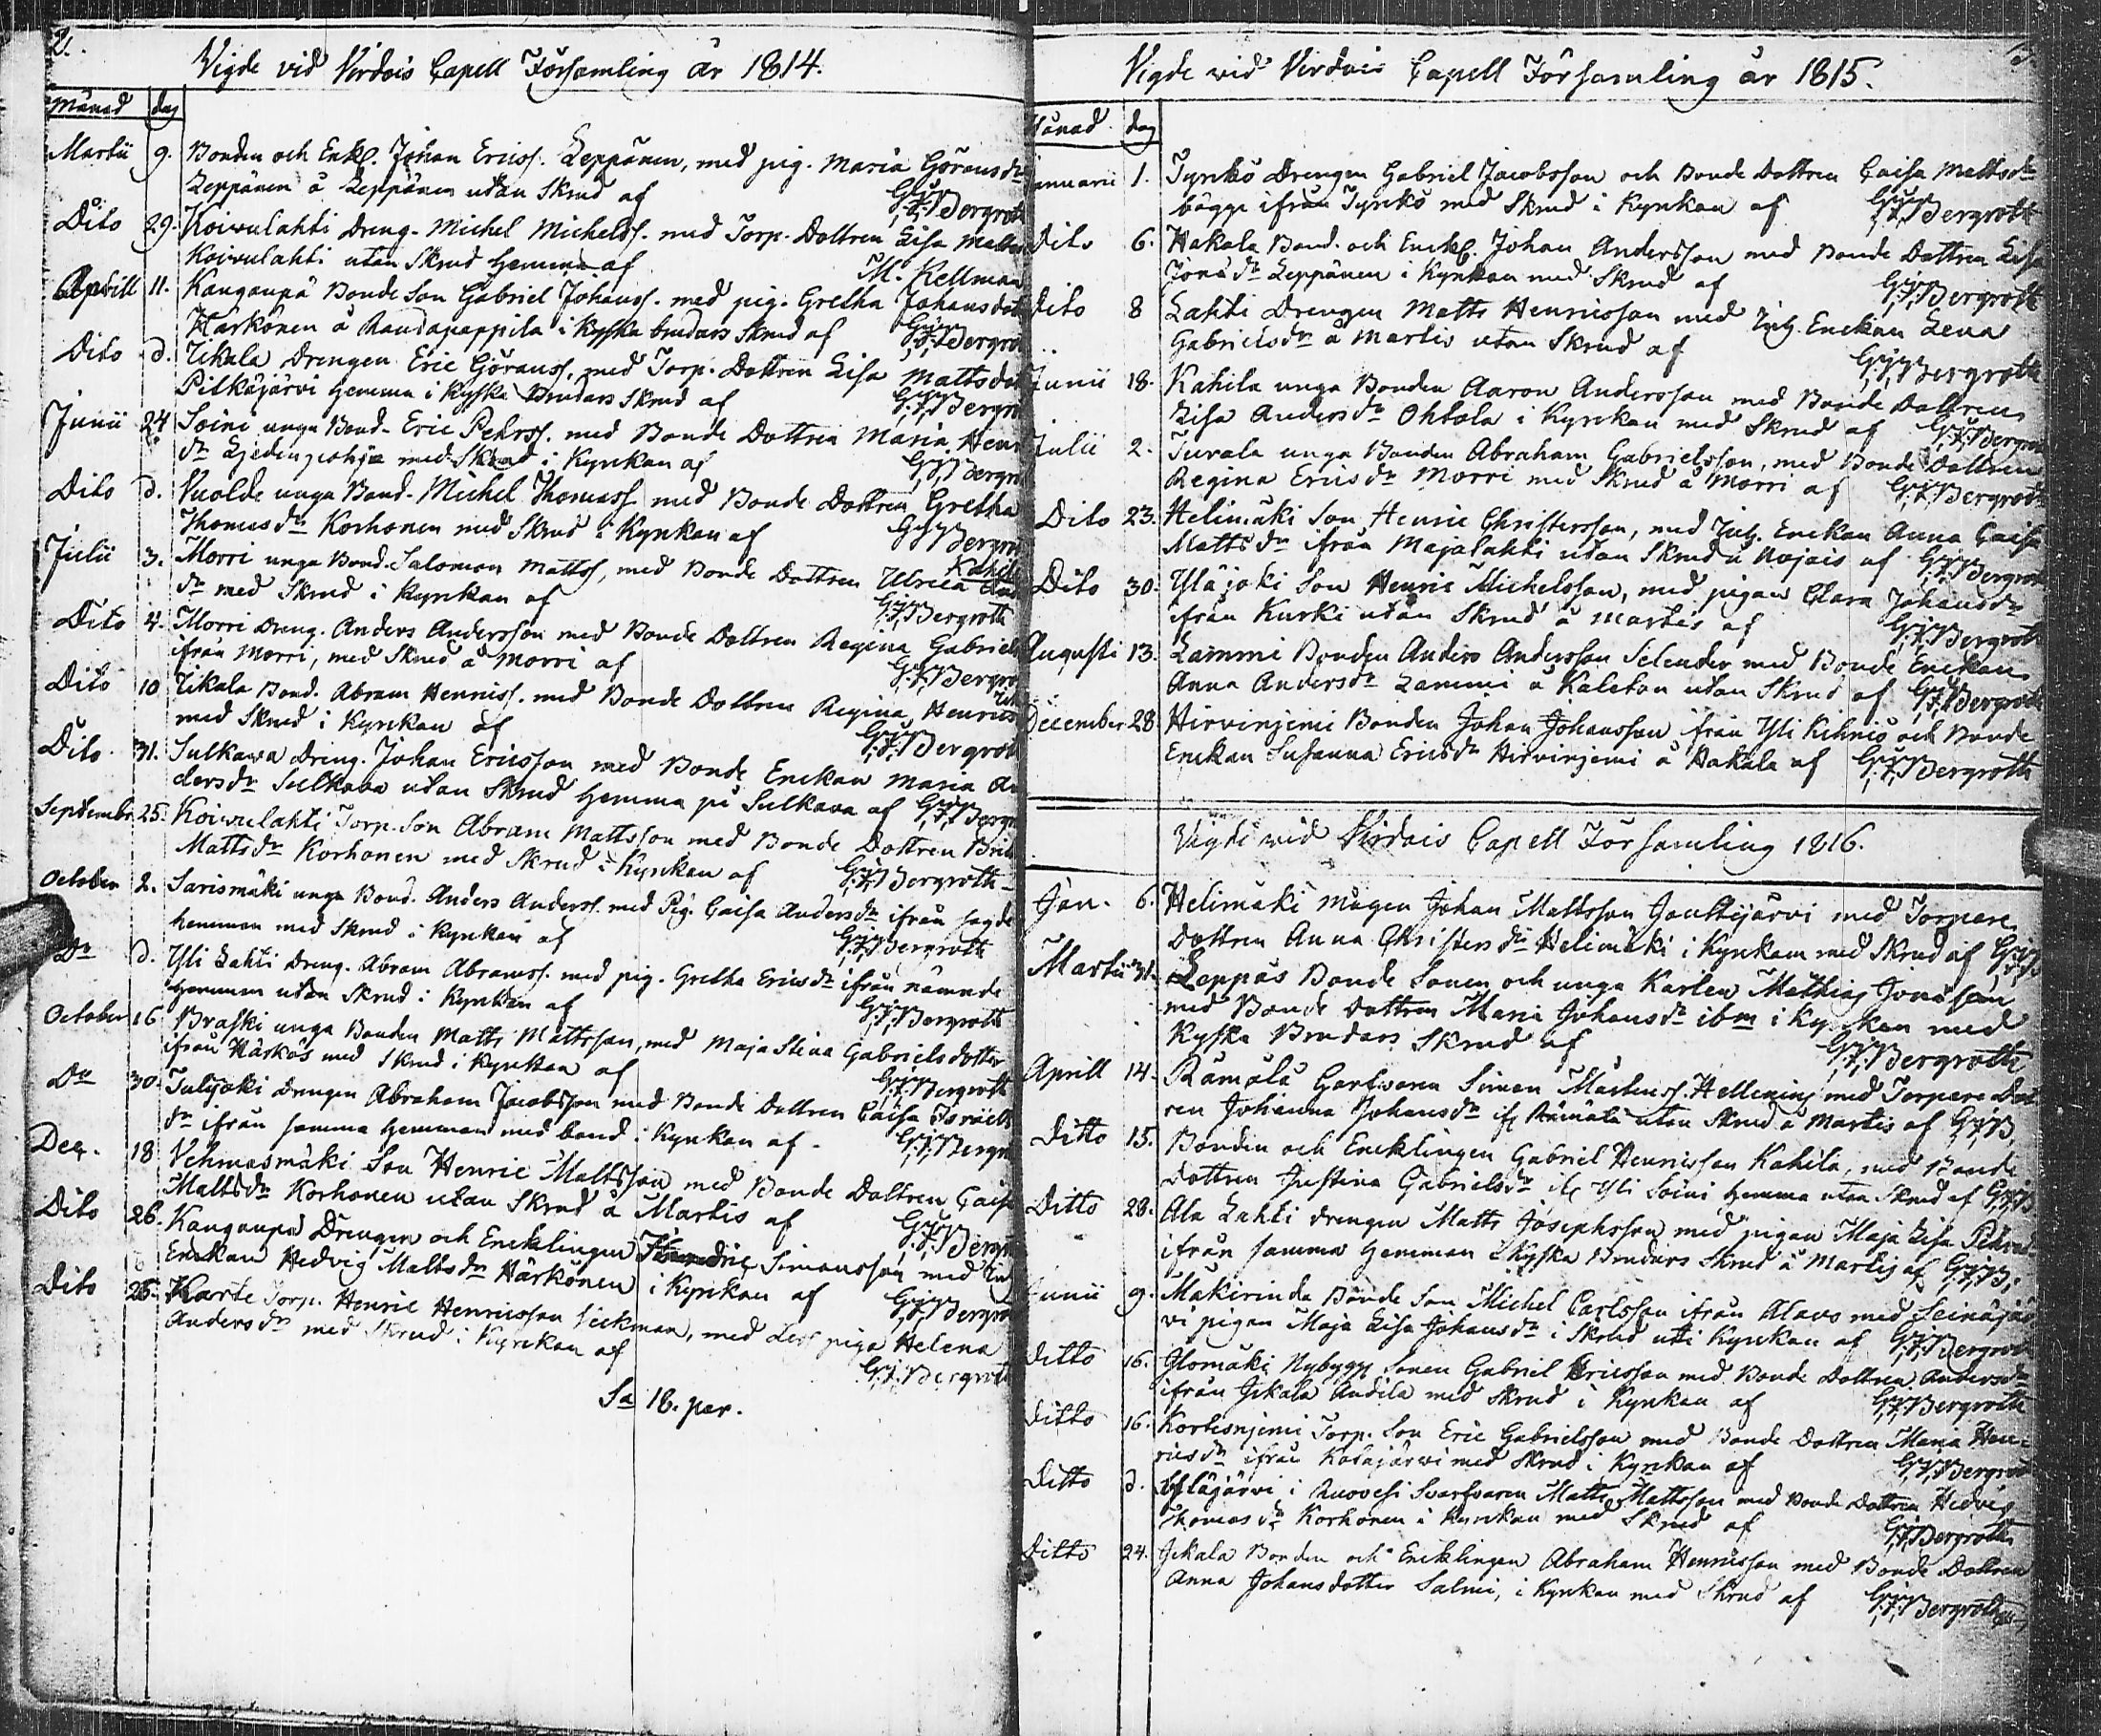 2.
Vigde vid Virdois Capell Församling år 1814.
Månad dag
Martii 9. Bonden och Enkl. Johan Ericss. Leppänen, med pig. Maria Görans dr
Leppänen å Leppänen utan Skrud af G:J:Bergroth
Dito 29. Koivulahti Dreng. Michel Michelss. med Torp. Dottren Lisa Matts
Koivulahti utan Skrud hemma af M. Kellman
Aprill 11. Kangaupä Bonde Son Gabriel Johanss. med pig. Gretha Johansdot
Härkönen å Raudapappila i Ryska brudars Skrud af G:J:Bergro
Dito d. Jikala Drengen Eric Göranss. med Torp. Dottren Lisa Mattsdot
Pitkäjärvi hemma i Ryska Brudars Skrud af G:J:Bergr
Junii 24 Soini unga Bond. Eric Pehrss. med Bonde Dottren Maria Hen
dr med Skrud i Kyrkan af G:J:Bergr
Dito d. Vuolde unga Bond. Michel Thomass. med Bonde Dottren Gretha
Thomas dr Korhonen med Skrud i Kyrkan af G:J:Bergro
Julii 3. Morri unga Bond. Salomon Mattss, med Bonde Dottren Ulrica
dr med Skrud i Kyrkan af G:J:Bergroth
Dito 4. Morri Dreng. Anders Andersson med Bonde Dottren Regina Gabriels
ifrån Morri, med Skrud å Morri af G:J:Bergro
Dito 10 Jikala Bond. Abram Henriss. med Bonde Dottren Regina Henrics
med Skrud i Kyrkan af G:J:Bergrot
Dito 31. Sulkawa Dreng. Johan Ericsson med Bonde Enckan Maria An
dersdr Sulkava utan Skrud hemma på Sulkava af G:J:Bergr
Septembr 25. Koivulahti Torp. Son Abram Mattsson med Bonde Dottren Brit
Mattsdr Korhonen med Skrud i Kyrkan af G:J:Bergroth
October 2. Sarismäki unga Bond. Anders Anderss. med Pig. Caisa Andersdr ifrån sagde
hemman med Skrud i Kyrkan af G:J:Bergroth
Do d. Yli Lahti Dreng. Abram Abramss. med pig. Gretha Ericsdr ifrån nämnde
hemman utan Skrud i Kyrkan af G:J:Bergroth
October 16 Braski unga Bonden Matts Mattsson, med Maja Stina Gabrielsdotter
ifrån Härkös med Skrud i Kyrkan af G:J:Bergroth
Do 30. Drengen Abraham Jacobsson med Bonde Dottren Caisa Israels
dr ifrån samma hemman med band i Kyrkan af G:J:Bergr
Dec. 18 Vehmasmäki Son Henric Mattsson med Bonde Dottren Caisa
Mattsdr Korhonen utan Skrud å Martis af G:J:Bergr
Dito 26. Kangaupä Drengen och Encklingen Simonsson med
Enckan Hedvig Mattsdr Härkönen i Kyrkan af G:J:Bergro
Dito 26. Torp. Henric Henricsson Sickman, med Dess piga Helena
Andersdr med Skrud i Kyrkan af G:J:Bergrot
Sa 18. par.
3.
Vigde vid Virdois Capell Församling år 1815.
Månad dag
Januarii 1. Tyrkö Drengen Gabriel Jacobsson och Bonde Dottren Caisa Mattsdr
bägge ifrån Tyrkö med Skrud i Kyrkan af G:J:Bergroth
Dito 6. Hakala Bond. och Enckl. Johan Andersson med Bonde Dottren Lisa
Jöransdr Leppänen i Kyrkan med Skrud af G:J:Bergroth
Dito 8 Lahti Drengen Matts Henricsson med Enckan Lena
Gabrielsdr å Martis utan Skrud af G:J:Bergroth
Junii 18. Kahila unga Bonden Aaron Andersson med Bonde Dottren
Lisa Andersdr Ohtola i Kyrkan med Skrud af G:J:Bergro
Julii 2. Turala unga Bonden Abraham Gabrielsson, med Bonde Dottren
Regina Ericsdr Morri med Skrud å Morri af G:J:Bergroth
Dito 23. Helimäki Son Henric Christersson, med Enckan Anna Caisa
Mattsdr ifrån Majalahti utan Skrud å af G:J:Bergroth
Dito 30. Yläjoki Son Henric Michelsson, med pigan Clara Johansdr
ifrån Kurki utan Skrud å Martis af G:J:Bergroth
Augusti 13. Lammi Bonden Anders Andersson Selender med Bonde Enckan
Anna Andersdr Lammi å Kaleton utan Skrud af G:J:Bergroth
December 28 Hirvinjemi Bonden Johan Johansson ifrån Yli Kihniö och Bonde
Enckan Susanna Ericsdr Hirvinjemi å Hakala af G:J:Bergroth
Vigde vid Virdois Capell Församling 1816.
Jan. 6. Helimäki mågen Johan Mattsson Joutsijärvi med Torpare
Dottren Anna Christersdr Helimäki i Kyrkan med Skrud af G:J:B
Martii 31. Leppäs Bonde Sonen och unga Karlen Mathias Jonasson
med Bonde Dottren Maria Johansdr ibm i Kyrkan med
Ryska Brudars Skrud af G:J:Bergroth
Aprill 14. Rämälä Garfvaren Simon Mårtenss. Hellening med Torpare Dot
ren Johanna Johansdr if Rämälä utan Skrud å Martis af G:J:B
Ditto 15. Bonden och Encklingen Gabriel Henricsson Kahila, med Bonde
Dottren Justina Gabrielsdr if Yli Soini hemma utan Skrud af G:J:B
Ditto 28. Ala Lahti drengen Matts Josephsson med pigan Maja Lisa Pehrsdr
ifrån samma hemman i Ryska Brudars Skrud å Martis af G:J:B:
Junii 9. Mäkirinda Bonde Son Michel Carlsson ifrån Alavo med Seinäjär
vi pigan Maja Lisa Johansdr i Skrud uti Kyrkan af G:J:Bergrot
Ditto 16. Ilomäki Nybygg Sonen Gabriel Ericsson med Bonde Dottren Andersdr
ifrån Jikala Andila med Skrud i Kyrkan af G:J:Bergroth
Ditto 16. Kortisnjemi Torp. Son Eric Gabrielsson med Bonde Dottren Maria Hen-
ricsdr ifrån Kotajärvi med Skrud i Kyrkan af G:J:Bergrot
Ditto d. i Ruovesi Svarfvaren Matts Mattsson med Bonde Dottren Hedvig
Thomasdr Korhonen i Kyrkan med Skrud af G:J:Bergroth
Ditto 24. Jikala Bonden och Encklingen Abraham Henricsson med Bonde Dottren
Anna Johansdotter Salmi, i Kyrkan med Skrud af G:J:Bergroth